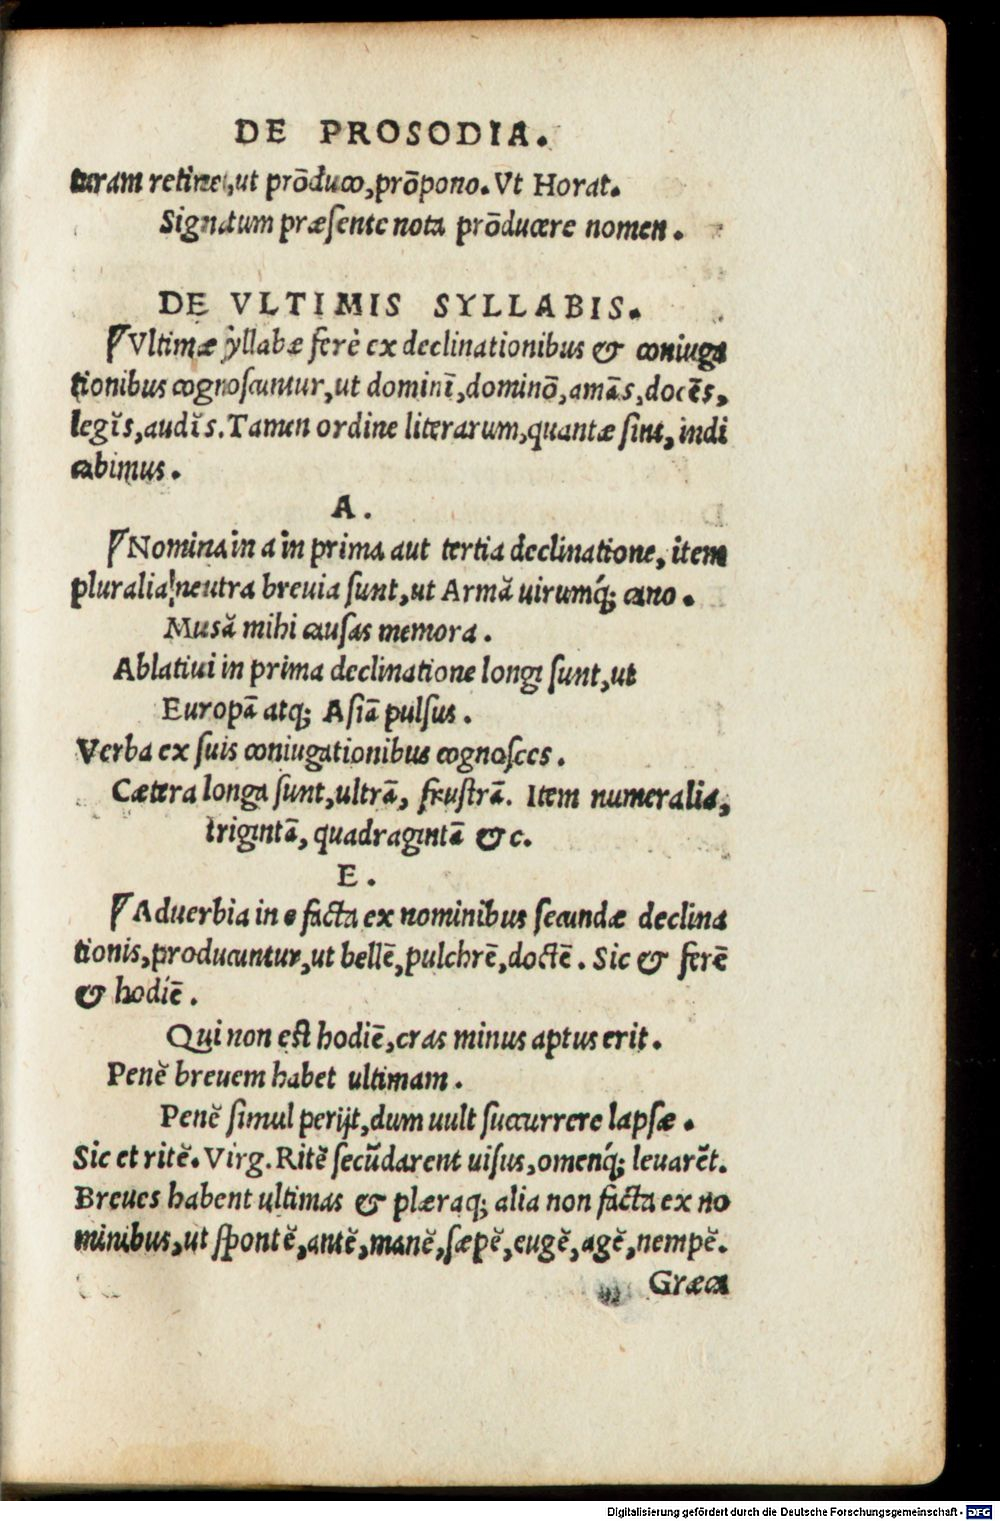 DE PROSODIA.
turam retinet, ut prōduco, prōpono. Vt Horat.
Signatum præſente nota prōducere nomen.
DE VLTIMIS SYLLABIS.
Vltimæ ſyllabæ ferè ex declinationibus & coniuga
tionibus cognoſcuntur, ut dominī, dominō, amās, docēs,
legĭs, audīs. Tamen ordine literarum, quantæ ſint, indi
cabimus.
A.
Nomina in a in prima aut tertia declinatione, item
pluralia neutra breuia ſunt, ut Armă uirumq́; cano.
Musă mihi cauſas memora.
Ablatiui in prima declinatione longi ſunt, ut
Europā atq; Aſiā pulſus.
Verba ex ſuis coniugationibus cognoſces.
Cætera longa ſunt, ultrā, fruſtrā. Item numeralia,
trigintā, quadragintā & c.
E.
Aduerbia in e facta ex nominibus ſecundæ declina
tionis, producuntur, ut bellē, pulchrē, doctē. Sic & ferē
& hodiē.
Qui non eſt hodiē, cras minus aptus erit.
Penĕ breuem habet ultimam.
Penĕ ſimul perijt, dum uult ſuccurrere lapſæ.
Sic et ritĕ. Virg. Ritĕ ſecūdarent uiſus, omenq́; leuarēt.
Breues habent ultimas & plæraq; alia non facta ex no
minibus, ut ſpontĕ, antĕ, manĕ, ſæpĕ, eugĕ, agĕ, nempĕ.
Græca
Digitalisierung gefördert durch die Deutsche Forschungsgemeinschaft - DFG